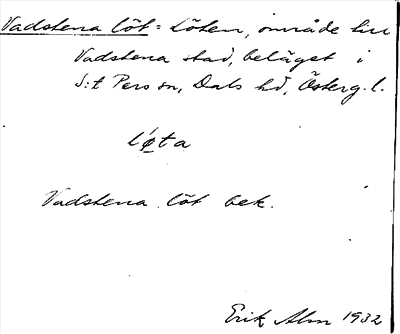 Vadstena löt = Löten, område till
Vadstena stad, beläget i
S:t Pers sn, Dals hd, Österg. l.
lø̀ta
Vadstena löt bek.
Erik Alm 1932